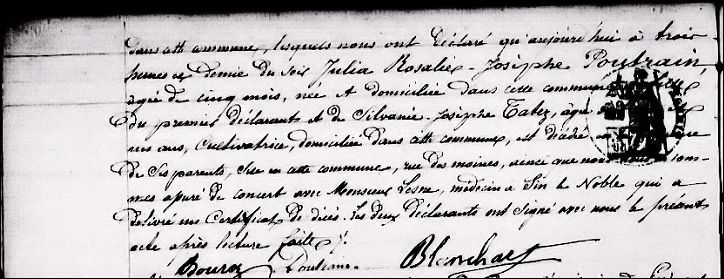 dans cette commune, lesquels nous ont déclaré qu'aujourd'hui à trois
heures et demie du soir Julia Rosalie Josèphe Poutrain,
agée de cinq mois, née et domiciliée dans cette commune
du premier déclarant et de Silvanie Josèphe Tabez, agée
uns ans, cultivatrice, domiciliée dans cette commune, est décédée
de ses parents, sise en cette commune, rue des moines, ainsi que nous nous en som-
mes assuré de concert avec Monsieur Lesne, médecin à Sin le Noble qui a
délivré un certificat de décès. Les deux déclarants ont signé avec nous le présent
acte après lecture faite.
Poutrain Blanchart